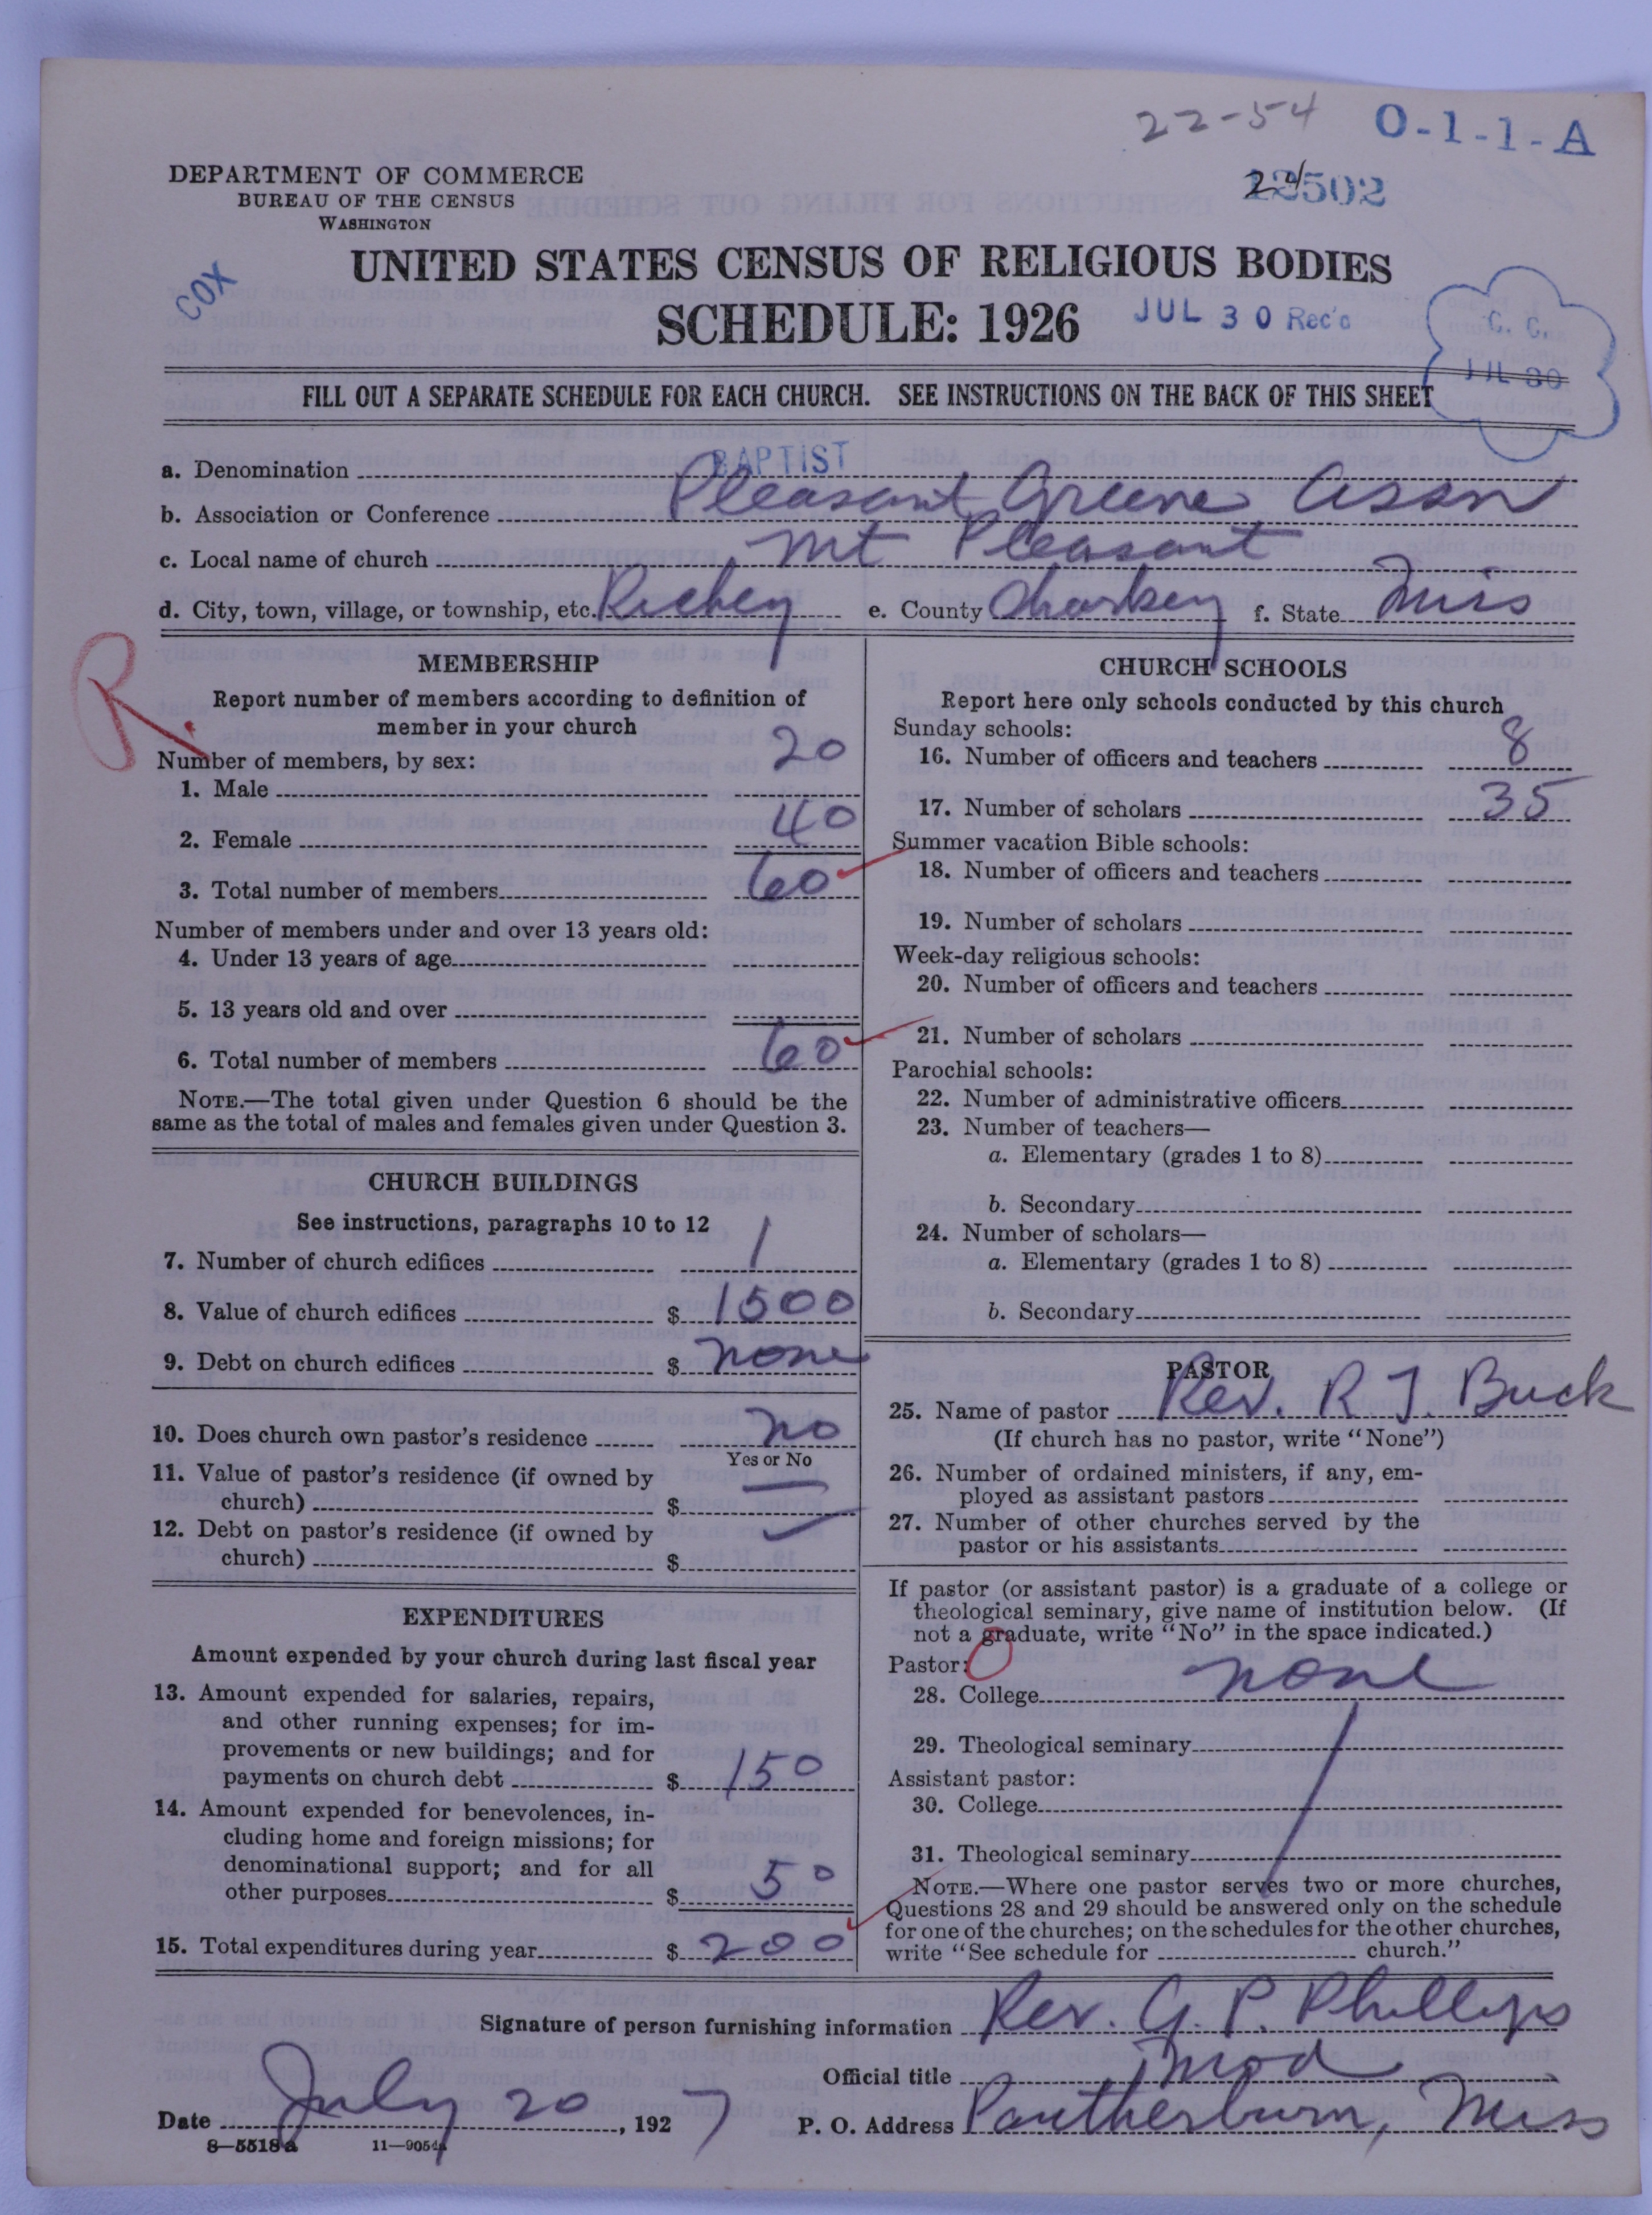 22-54 O-1-1-A
DEPARTMENT OF COMMERCE
BUREAU OF THE CENSUS
WASHINGTON
502
UNITED STATES CENSUS OF RELIGIOUS BODIES
COX
SCHEDULE: 1926
JUL 30 Rec'd
C. C.
JUL 30
FILL OUT A SEPARATE SCHEDULE FOR EACH CHURCH. SEE INSTRUCTIONS ON THE BACK OF THIS SHEET
a. Denomination BAPTIST
b. Association or Conference Pleasant Greene Assn
c. Local name of church Mt Pleasant
d. City, town, village, or township, etc. Richey e. County Sharkey f. State Miss
R
MEMBERSHIP
Report number of members according to definition of
member in your church
Number of members, by sex:
1. Male 20
2. Female 40
3. Total number of members 60
Number of members under and over 13 years old:
4. Under 13 years of age
5. 13 years old and over
6. Total number of members 60
NOTE.—The total given under Question 6 should be the
same as the total of males and females given under Question 3.
CHURCH BUILDINGS
See instructions, paragraphs 10 to 12
7. Number of church edifices 1
8. Value of church edifices $ 1500
9. Debt on church edifices $ none
10. Does church own pastor's residence no
Yes or No
11. Value of pastor's residence (if owned by
church) $
12. Debt on pastor's residence (if owned by
church) $
EXPENDITURES
Amount expended by your church during last fiscal year
13. Amount expended for salaries, repairs,
and other running expenses; for im-
provements or new buildings; and for
payments on church debt $ 150
14. Amount expended for benevolences, in-
cluding home and foreign missions; for
denominational support; and for all
other purposes $ 50
15. Total expenditures during year $ 200
CHURCH SCHOOLS
Report here only schools conducted by this church
Sunday schools:
16. Number of officers and teachers 8
17. Number of scholars 35
Summer vacation Bible schools:
18. Number of officers and teachers
19. Number of scholars
Week-day religious schools:
20. Number of officers and teachers
21. Number of scholars
Parochial schools:
22. Number of administrative officers
23. Number of teachers—
a. Elementary (grades 1 to 8)
b. Secondary
24. Number of scholars—
a. Elementary (grades 1 to 8)
b. Secondary
PASTOR
25. Name of pastor Rev. R J. Buck
(If church has no pastor, write "None")
26. Number of ordained ministers, if any, em-
ployed as assistant pastors
27. Number of other churches served by the
pastor or his assistants
If pastor (or assistant pastor) is a graduate of a college or
theological seminary, give name of institution below. (If
not a graduate, write "No" in the space indicated.)
Pastor: 0
28. College none
29. Theological seminary
Assistant pastor:
30. College
31. Theological seminary
NOTE.—Where one pastor serves two or more churches,
Questions 28 and 29 should be answered only on the schedule
for one of the churches; on the schedules for the other churches,
write "See schedule for church."
Signature of person furnishing information Rev. G. P. Phillips
Official title Mod
Date July 20, 1927 P. O. Address Pantherburn, Miss
8—5518a 11—9054